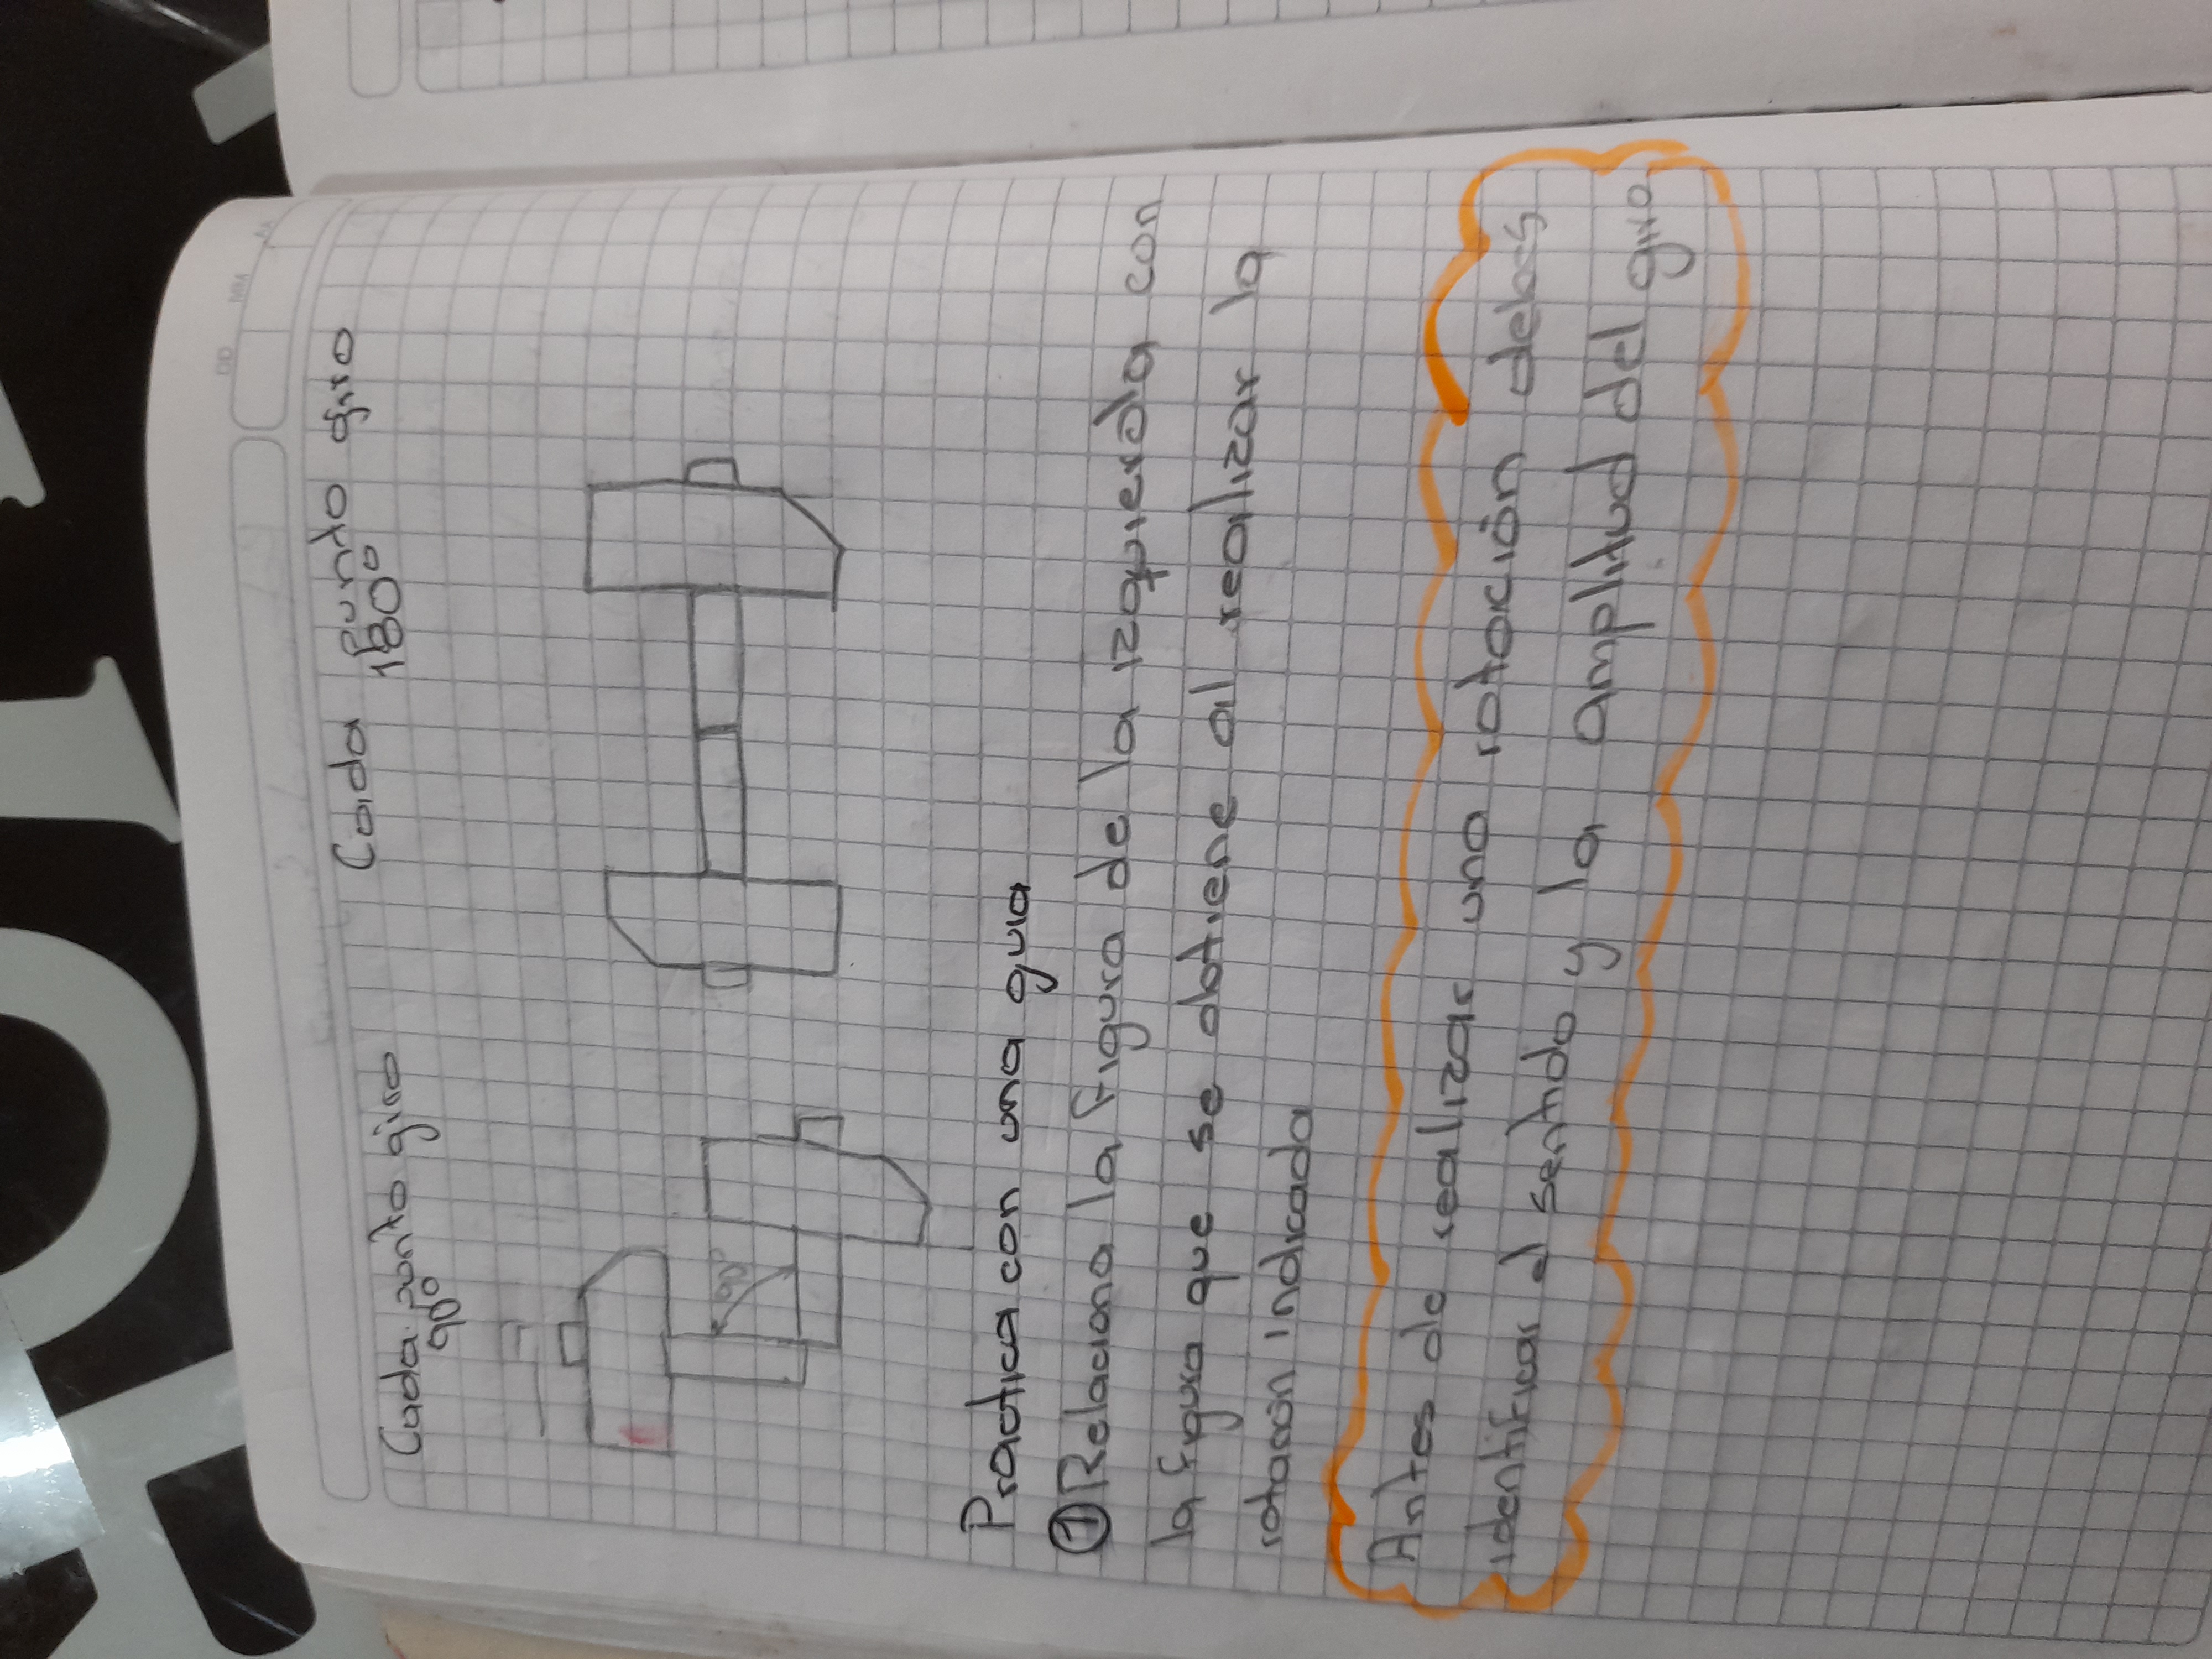 DD MM AA
Cada punto giro
90°
Cada punto giro
180°
90°
Practica con una guia
① Relaciono la figura de la izquierda con
la figura que se obtiene al realizar la
rotación indicada
Antes de realizar una rotación debes
identificar el sentido y la amplitud del giro